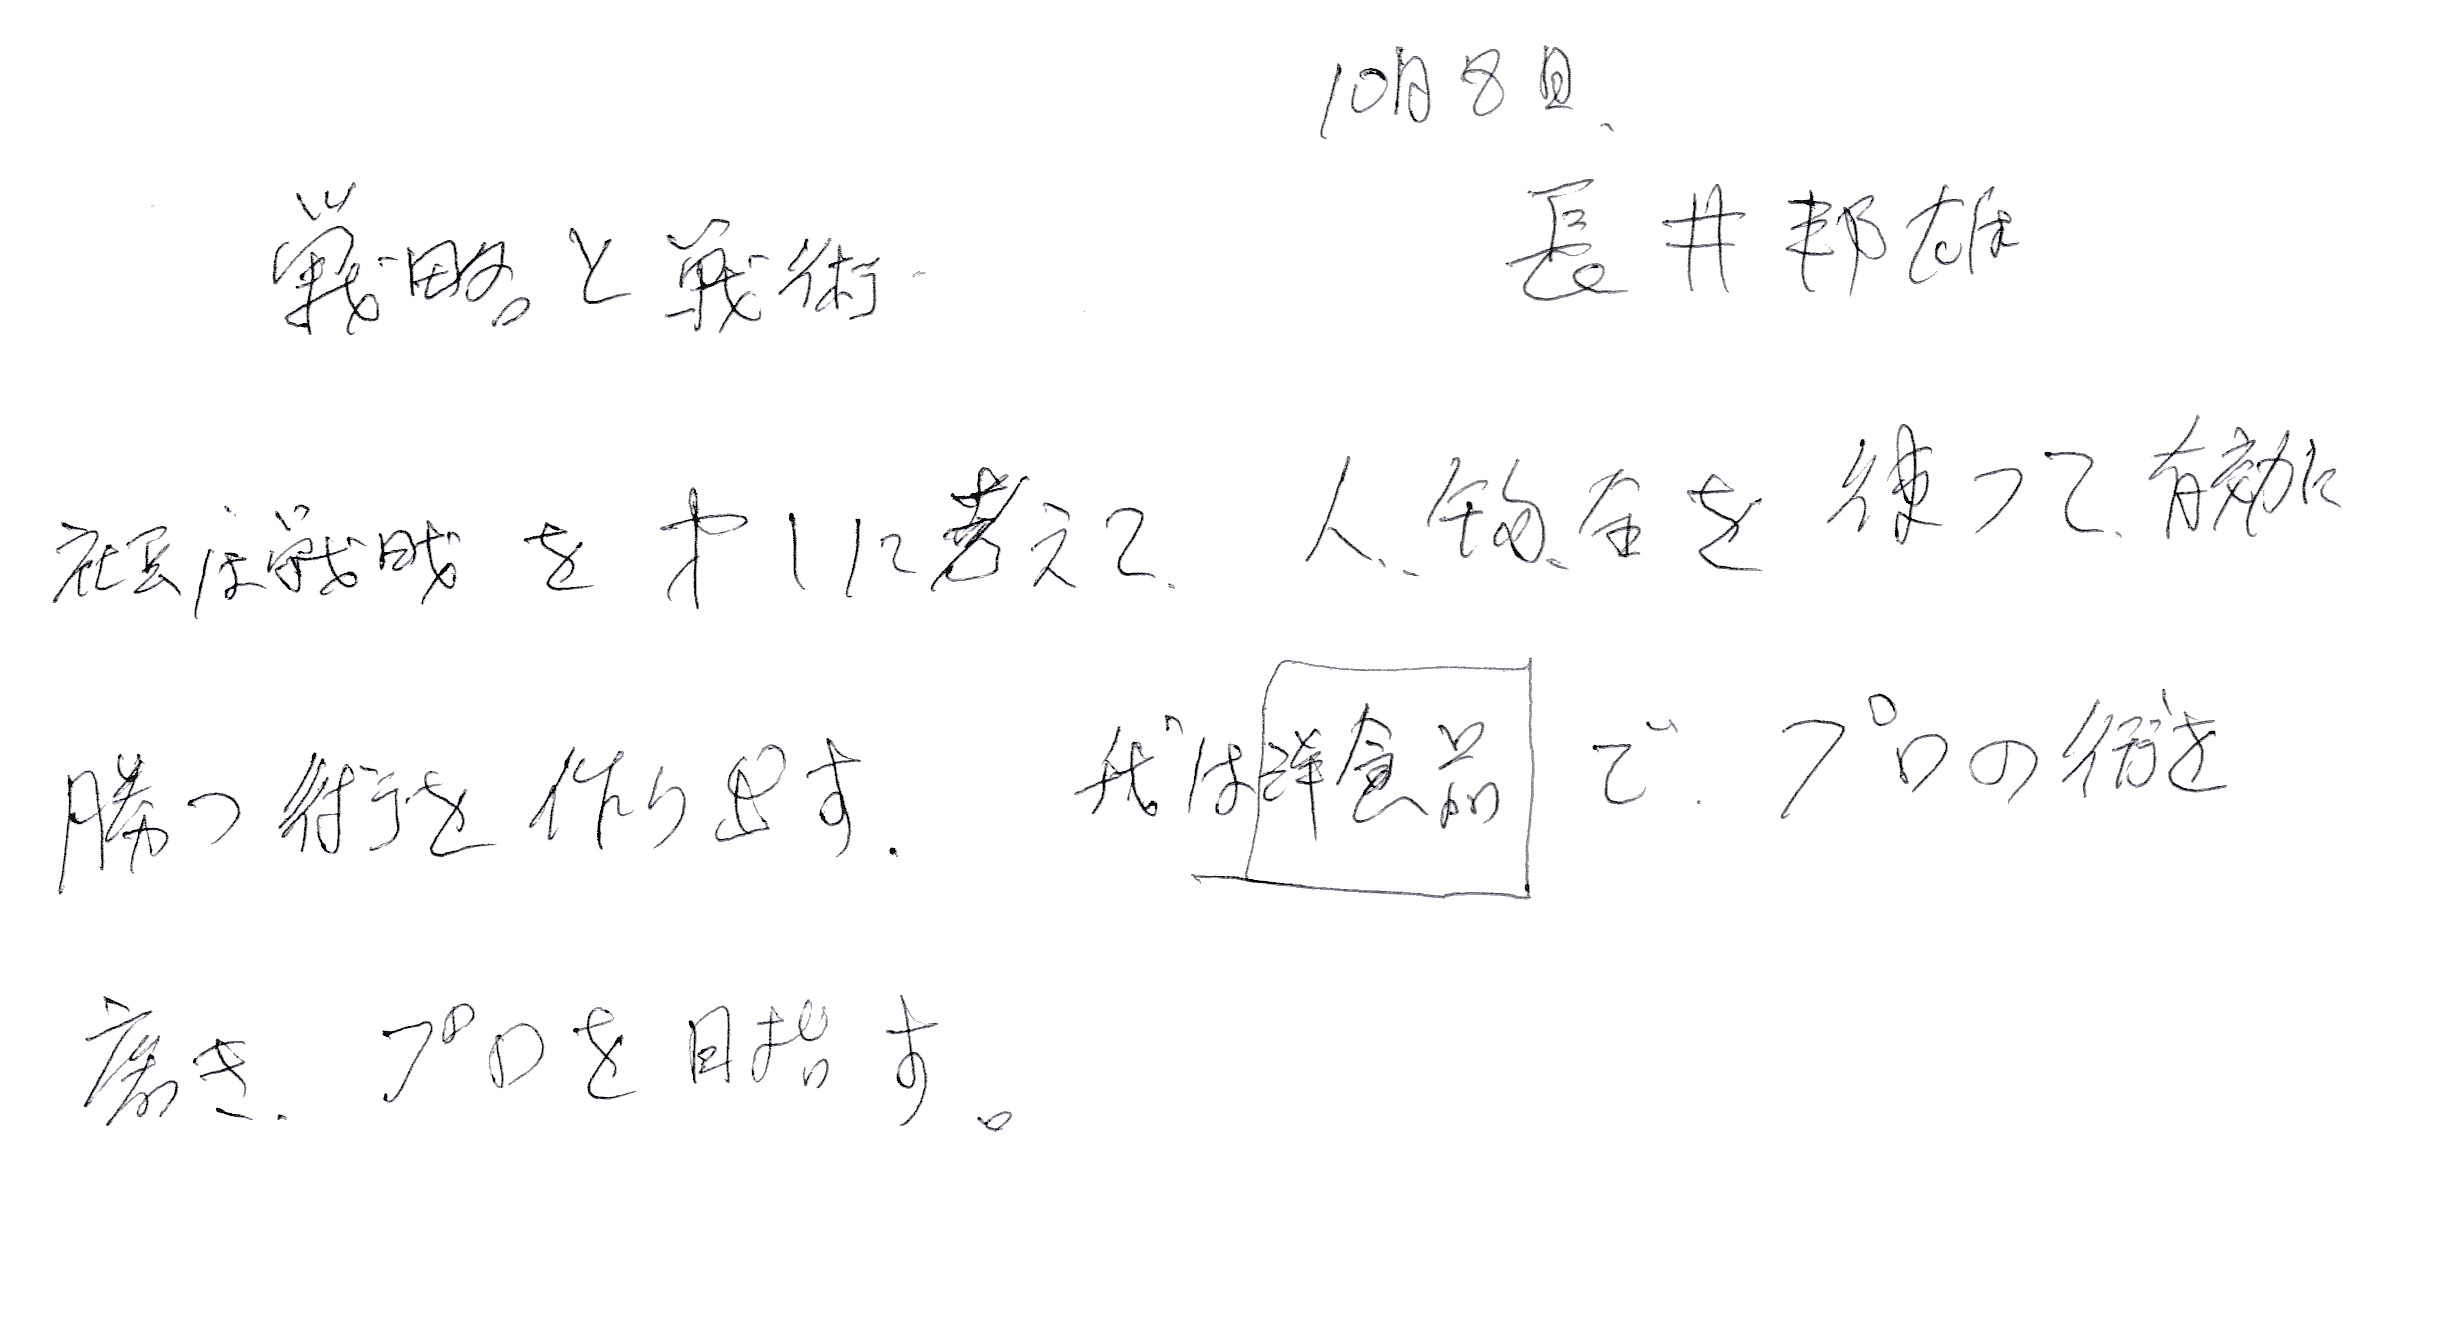 10月8日、
長井邦雄
戦略と戦術
社長は戦略を才1に考えて、人、物、金を練って、有効に
勝つ術を作り出す. 我は洋食品で、プロの術を
磨き、プロを目指す。